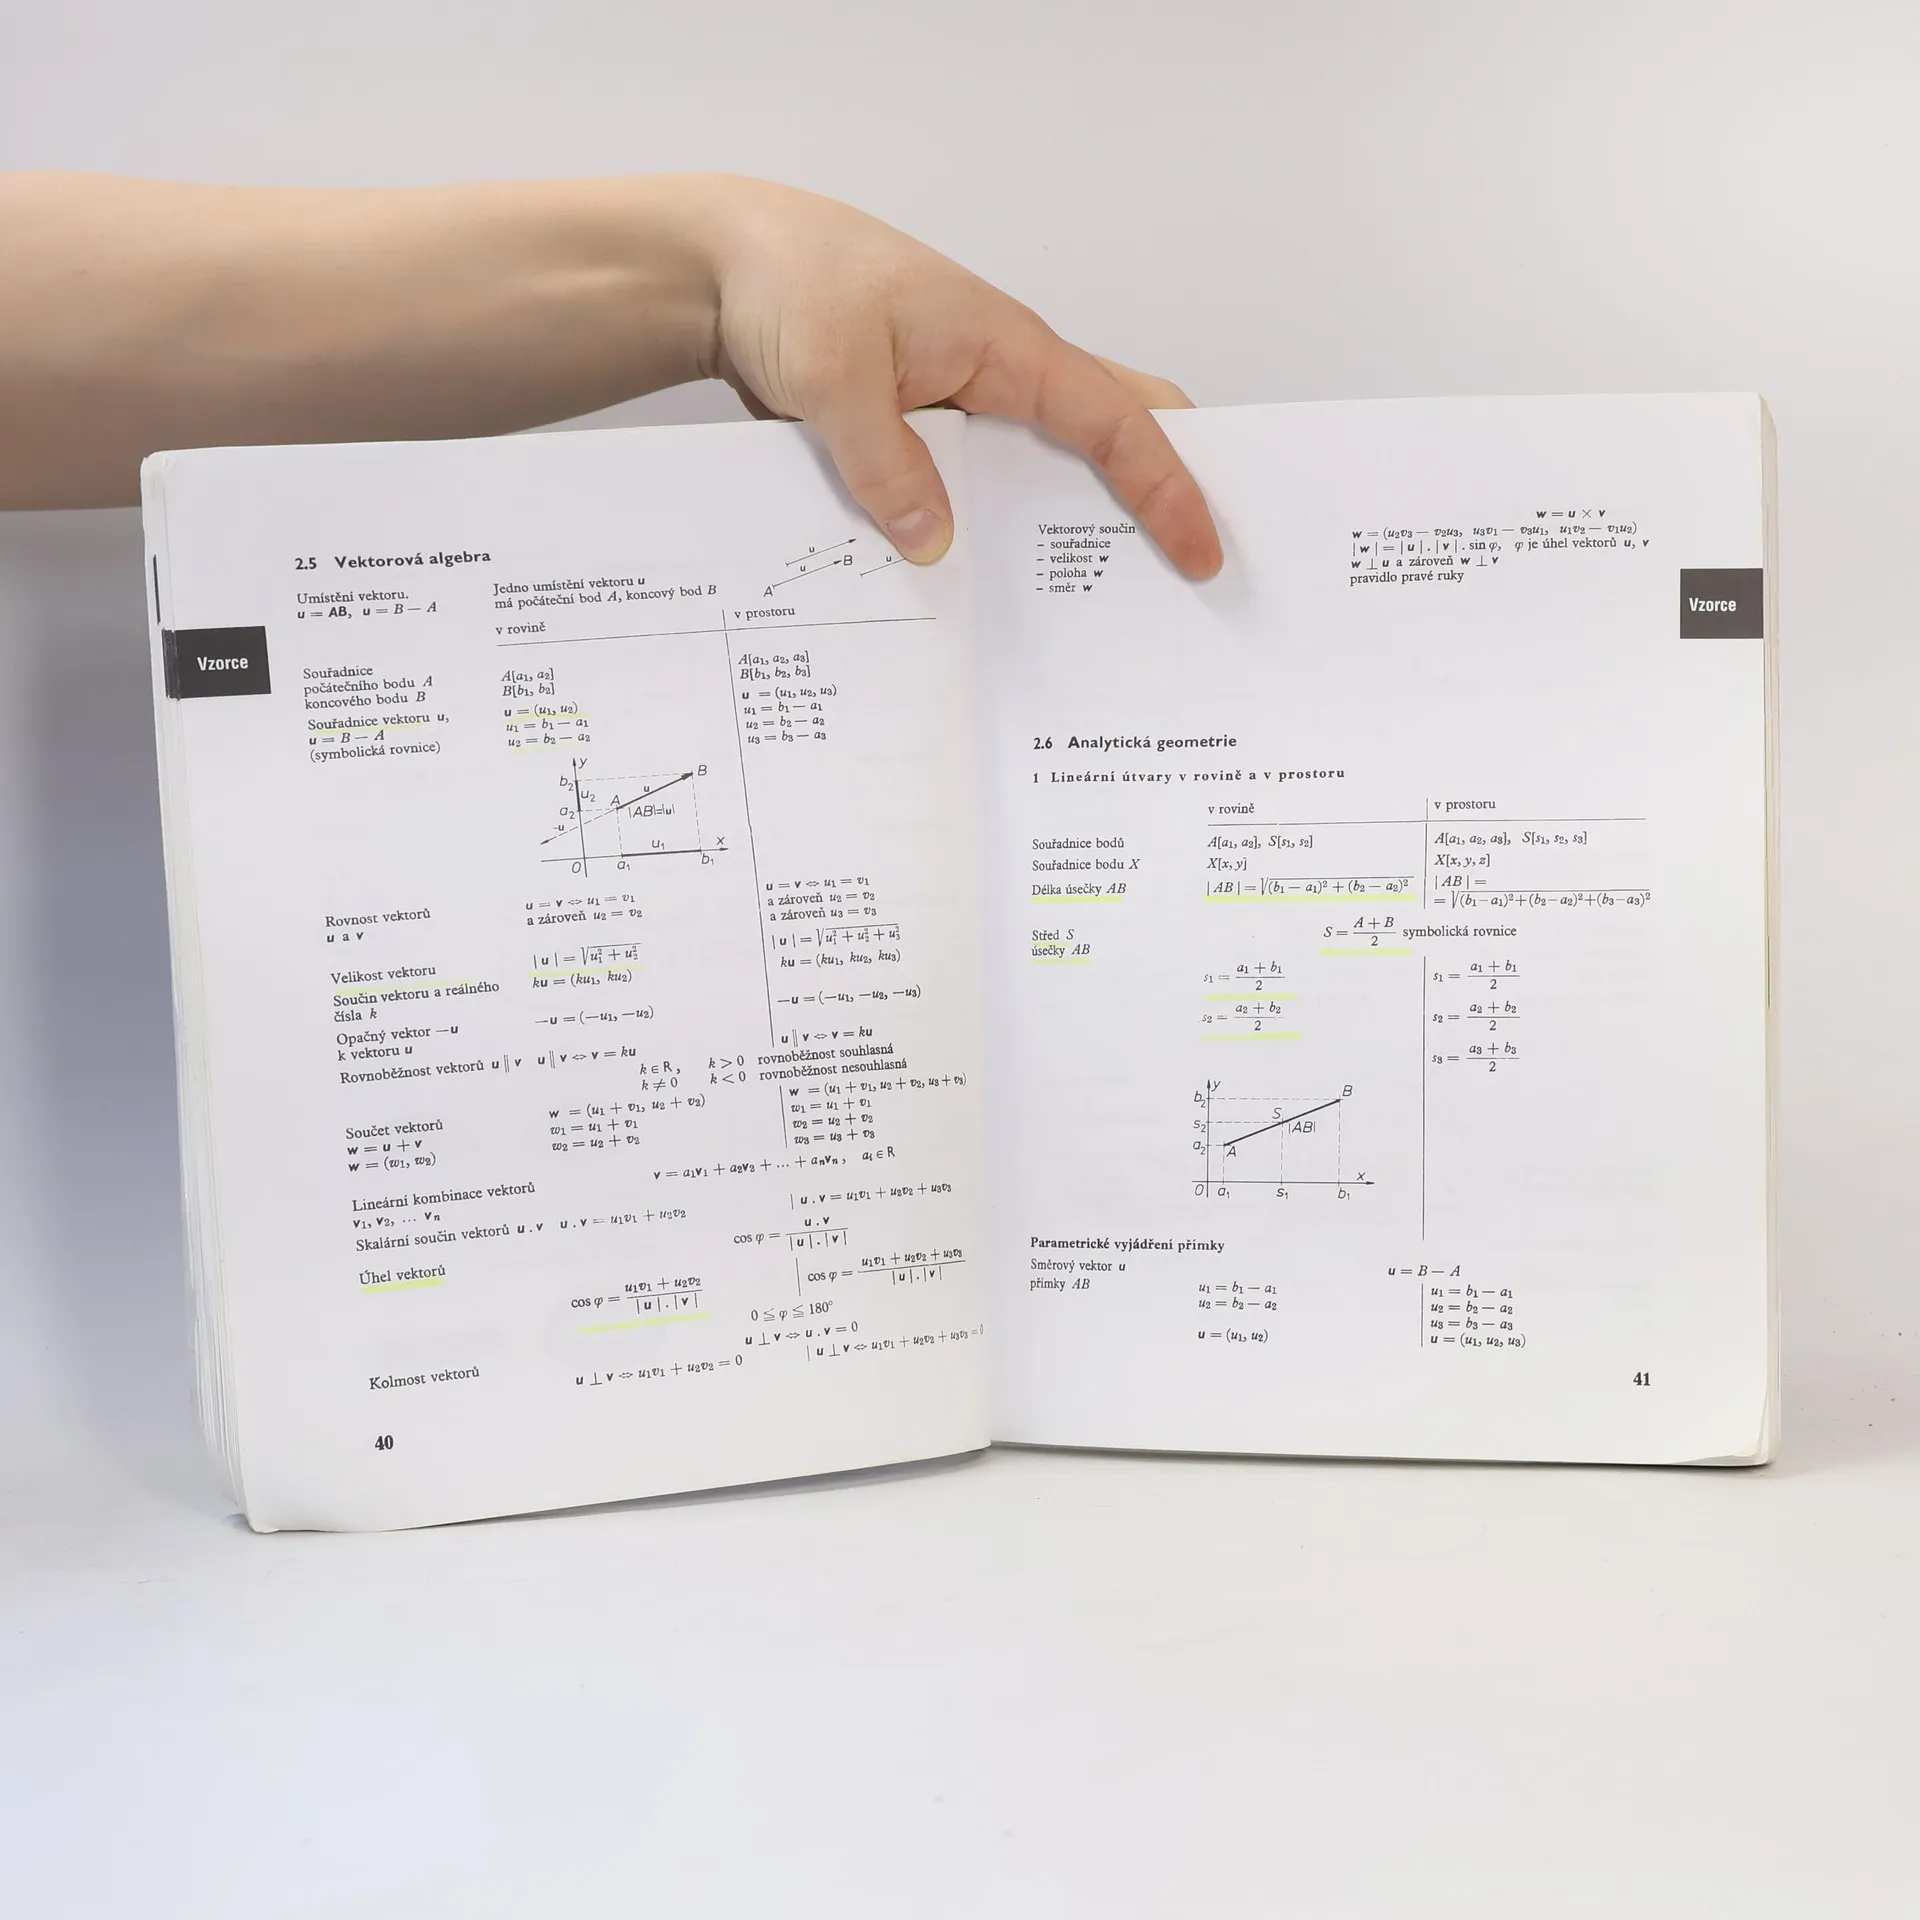 2.5 Vektorová algebra
u
u
u
A
B
Umístění vektoru.
u = AB, u = B — A
Jedno umístění vektoru u
má počáteční bod A, koncový bod B
v rovině
v prostoru
Vzorce
Souřadnice
počátečního bodu A
koncového bodu B
A[a₁, a₂]
B[b₁, b₂]
A[a₁, a₂, a₃]
B[b₁, b₂, b₃]
Souřadnice vektoru u,
u = B — A
(symbolická rovnice)
u = (u₁, u₂)
u₁ = b₁ — a₁
u₂ = b₂ — a₂
u = (u₁, u₂, u₃)
u₁ = b₁ — a₁
u₂ = b₂ — a₂
u₃ = b₃ — a₃
y
b₂
u₂
a₂
A
u
B
|AB|=|u|
-u
u₁
x
0
a₁
b₁
Rovnost vektorů
u a v
u = v ⇔ u₁ = v₁
a zároveň u₂ = v₂
u = v ⇔ u₁ = v₁
a zároveň u₂ = v₂
a zároveň u₃ = v₃
Velikost vektoru
|u| = √(u₁² + u₂²)
|u| = √(u₁² + u₂² + u₃²)
Součin vektoru a reálného
čísla k
ku = (ku₁, ku₂)
ku = (ku₁, ku₂, ku₃)
Opačný vektor —u
k vektoru u
—u = (—u₁, —u₂)
—u = (—u₁, —u₂, —u₃)
Rovnoběžnost vektorů u ∥ v u ∥ v ⇔ v = ku
u ∥ v ⇔ v = ku
k ∈ R, k > 0 rovnoběžnost souhlasná
k ≠ 0 k < 0 rovnoběžnost nesouhlasná
Součet vektorů
w = u + v
w = (w₁, w₂)
w = (u₁ + v₁, u₂ + v₂)
w₁ = u₁ + v₁
w₂ = u₂ + v₂
w = (u₁ + v₁, u₂ + v₂, u₃ + v₃)
w₁ = u₁ + v₁
w₂ = u₂ + v₂
w₃ = u₃ + v₃
Lineární kombinace vektorů
v₁, v₂, ... vₙ
v = a₁v₁ + a₂v₂ + ... + aₙvₙ, aᵢ ∈ R
Skalární součin vektorů u . v u . v = u₁v₁ + u₂v₂
u . v = u₁v₁ + u₂v₂ + u₃v₃
Úhel vektorů
cos φ = u . v / |u| . |v|
cos φ = u₁v₁ + u₂v₂ / |u| . |v|
cos φ = u₁v₁ + u₂v₂ + u₃v₃ / |u| . |v|
0 ≤ φ ≤ 180°
Kolmost vektorů
u ⊥ v ⇔ u . v = 0
u ⊥ v ⇔ u₁v₁ + u₂v₂ = 0
u ⊥ v ⇔ u₁v₁ + u₂v₂ + u₃v₃ = 0
40
Vektorový součin
– souřadnice
– velikost w
– poloha w
– směr w
w = u × v
w = (u₂v₃ — v₂u₃, u₃v₁ — v₃u₁, u₁v₂ — v₁u₂)
|w| = |u| . |v| . sin φ, φ je úhel vektorů u, v
w ⊥ u a zároveň w ⊥ v
pravidlo pravé ruky
Vzorce
2.6 Analytická geometrie
1 Lineární útvary v rovině a v prostoru
v rovině
v prostoru
Souřadnice bodů
A[a₁, a₂], S[s₁, s₂]
A[a₁, a₂, a₃], S[s₁, s₂, s₃]
Souřadnice bodu X
X[x, y]
X[x, y, z]
Délka úsečky AB
|AB| = √((b₁ — a₁)² + (b₂ — a₂)²)
|AB| =
= √((b₁—a₁)²+(b₂—a₂)²+(b₃—a₃)²)
Střed S
úsečky AB
S = A + B / 2 symbolická rovnice
s₁ = a₁ + b₁ / 2
s₂ = a₂ + b₂ / 2
s₁ = a₁ + b₁ / 2
s₂ = a₂ + b₂ / 2
s₃ = a₃ + b₃ / 2
y
b₂
s₂
a₂
A
S
|AB|
B
x
0
a₁
s₁
b₁
Parametrické vyjádření přímky
Směrový vektor u
přímky AB
u = B — A
u₁ = b₁ — a₁
u₂ = b₂ — a₂
u = (u₁, u₂)
u₁ = b₁ — a₁
u₂ = b₂ — a₂
u₃ = b₃ — a₃
u = (u₁, u₂, u₃)
41